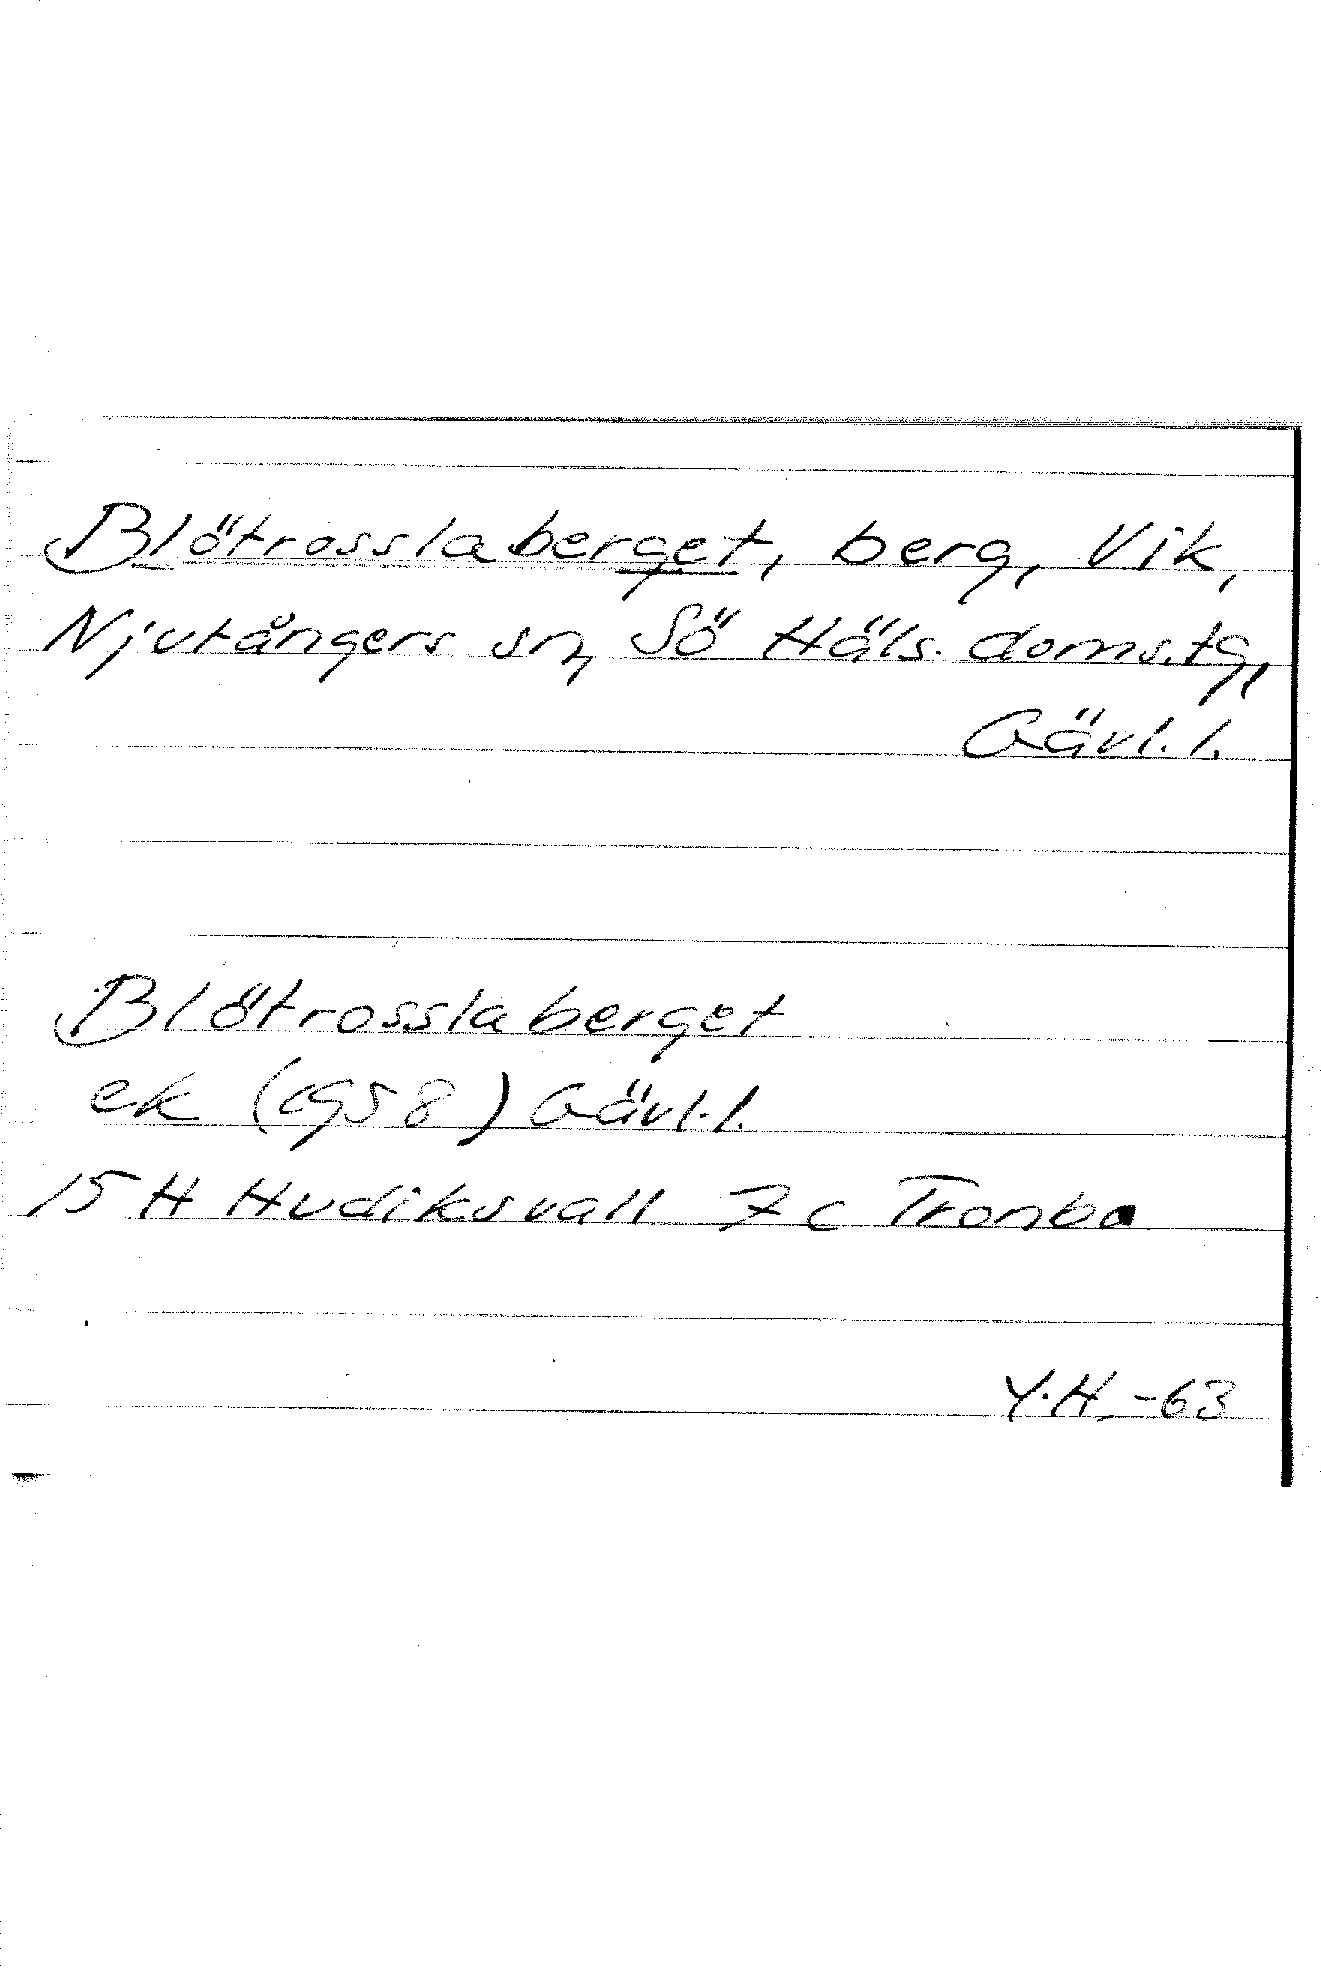 Blötrosslaberget, berg, Vik,
Njutångers sn, Sö Häls. doms.tg,
Gävl. l.
Blötrosslaberget
ek (1958) Gävl. l.
15 H Hudiksvall 7 c Tronbo
Y.H. -63